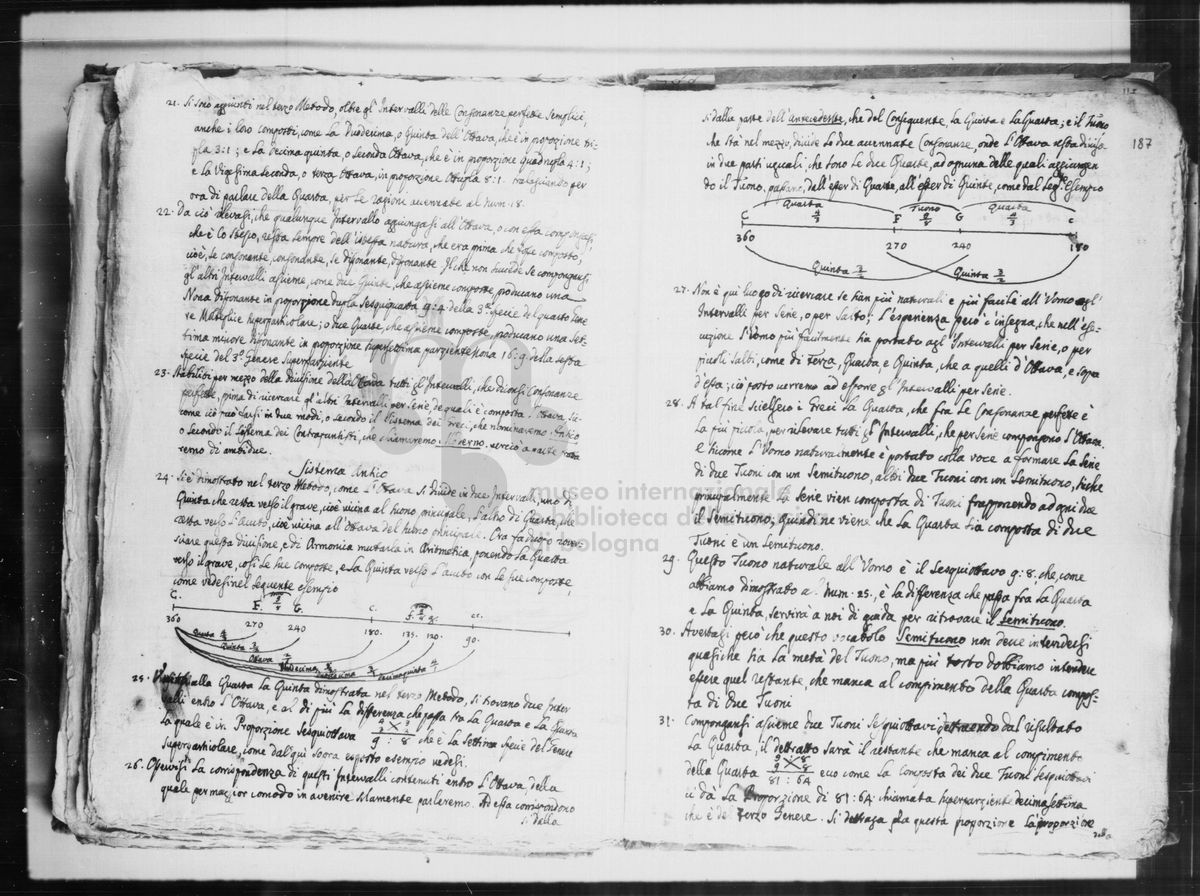 21. Si sono aggiunti nel terzo Metodo, oltre gl'Intervalli delle Consonanze perfette semplici,
anche i loro composti, come la Duodecima, o Quinta dell'Ottava, che è in proporzione tri-
pla 3:1; e la decima quinta, o seconda Ottava, che è in proporzione Quadrupla 4:1;
e la Vigesima seconda, o terza Ottava, in proporzione Ottupla 8:1. tralasciando per
ora di parlare della Quarta, per le ragioni avvertite al num. 18.
22. Da ciò rilevasi, che qualunque Intervallo aggiungasi all'Ottava, o con essa compongasi,
che è lo stesso, resta sempre dell'istessa natura, che era prima che fosse composto,
cioè, se consonante, consonante, se dissonante, dissonante. Il che non succede se compongansi
gl'altri Intervalli assieme, come due Quinte, che assieme composte, producano una
Nona dissonante in proporzione dupla Sesquiquarta 9:4 della 3.ª specie del Quarto Gene
re Moltiplice superparticolare; o due Quarte, che assieme composte, producano una Set-
tima minore dissonante in proporzione supersettima parziente nona 16:9 della sesta
specie del 3.º Genere Superparziente.
23. Stabiliti per mezzo della divisione della Ottava tutti gl'Intervalli, che diconsi Consonanze
perfette, prima di ricercare gl'altri Intervalli per serie, de quali è composta l'Ottava, sic-
come ciò può farsi in due modi, o secondo il Sistema dei Greci, che nominaremo Antico
o secondo il Sistema dei Contrapuntisti, che chiamaremo Moderno. perciò a parte tratta
remo di ambidue.
Sistema Antico
24. Si è dimostrato nel terzo Metodo, come l'Ottava si divide in due Intervalli, uno di
Quinta che resta verso il grave, cioè vicina al tuono principale, l'altro di Quarta, che
resta verso l'acuto, cioè vicina all'Ottava del tuono principale. Ora fa duopo rove-
sciare questa divisione, e di Armonica mutarla in Aritmetica, ponendo la Quarta
verso il grave, colle sue composte, e la Quinta verso l'acuto con le sue composte,
come vedesi nel seguente esempio
C. F. 9/8 G. c. f. 9/8 g. cc.
360 270 240 180. 135. 120. 90.
Quarta 4/3
Quinta 3/2
Ottava 2/1
Undecima 8/3
Duodecima 3/1
Decimaquinta 4/1
25. alla Quarta la Quinta dimostrata nel terzo Metodo, si trovano due Inter
valli entro l'Ottava, e di più la differenza che passa tra la Quarta e la Quinta
la quale è in Proporzione Sesquiottava 9:8 che è la settima specie del Genere
Superparticolare, come dal qui sopra esposto esempio vedesi.
26. Osservisi la corrispondenza di questi Intervalli contenuti entro l'Ottava, della
quale per maggior comodo in avenire solamente parleremo. Ad essa corrispondono
si dalla
187
si dalla parte dell'antecedente, che del Consequente, la Quinta e la Quarta; e il Tuono
che sta nel mezzo, divide le due avvertite Consonanze, onde l'Ottava resta divisa
in due parti uguali, che sono le due Quarte, ad ognuna delle quali aggiungen
do il Tuono, passano, dall'esser di Quarte, all'esser di Quinte, come dal seg.te Esempio
Quarta Tuono Quarta
C 4/3 F 9/8 G 4/3 c
360 270 240 180
Quinta 3/2 Quinta 3/2
27. Non è qui luogo di ricercare se sian più naturali e più facili all'Uomo agl'
Intervalli per serie, o per salto; l'esperienza però c'insegna, che nell'ese-
cuzione l'Uomo più facilmente sia portato agl'Intervalli per serie, o per
piccoli salti, come di Terza, Quarta e Quinta, che a quelli d'Ottava, e sopra
d'essa; ciò posto verremo ad esporre gl'Intervalli per serie.
28. A tal fine scielsero i Greci la Quarta, che fra le Consonanze perfette è
la più piccola, per rilevare tutti gl'Intervalli, che per serie compongono l'Ottava.
e siccome l'Uomo naturalmente è portato colla voce a formare la serie
di due Tuoni con un Semituono, altri due Tuoni con un Semituono, sicche
principalmente la serie vien composta di Tuoni frapponendo ad ogni due
il Semituono, quindi ne viene che la Quarta sia composta di due
Tuoni è un Semituono.
29. Questo Tuono naturale all'Uomo è il Sesquiottavo 9:8, che, come
abbiamo dimostrato a. num. 25., è la differenza che passa fra la Quarta
e la Quinta, servirà a noi di guida per ritrovare il Semituono.
30. Avertasi però che questo vocabolo Semituono non deve intendersi
quasiche sia la metà del Tuono, ma più tosto dobbiamo intendere
essere quel restante, che manca al compimento della Quarta compos-
ta di due Tuoni
31. Compongansi assieme due Tuoni Sesquiottavi detraendo dal risultato
la Quarta, il detratto sarà il restante che manca al compimento
della Quarta 9 8 9 8 81:64 ecco come la composta dei due Tuoni Sesquiottavi
ci dà la Proporzione di 81:64 chiamata superparziente decimasettima
che è del terzo Genere. Si detraga da questa proporzione la proporzione
della
museo internazionale
e biblioteca della musica
di bologna